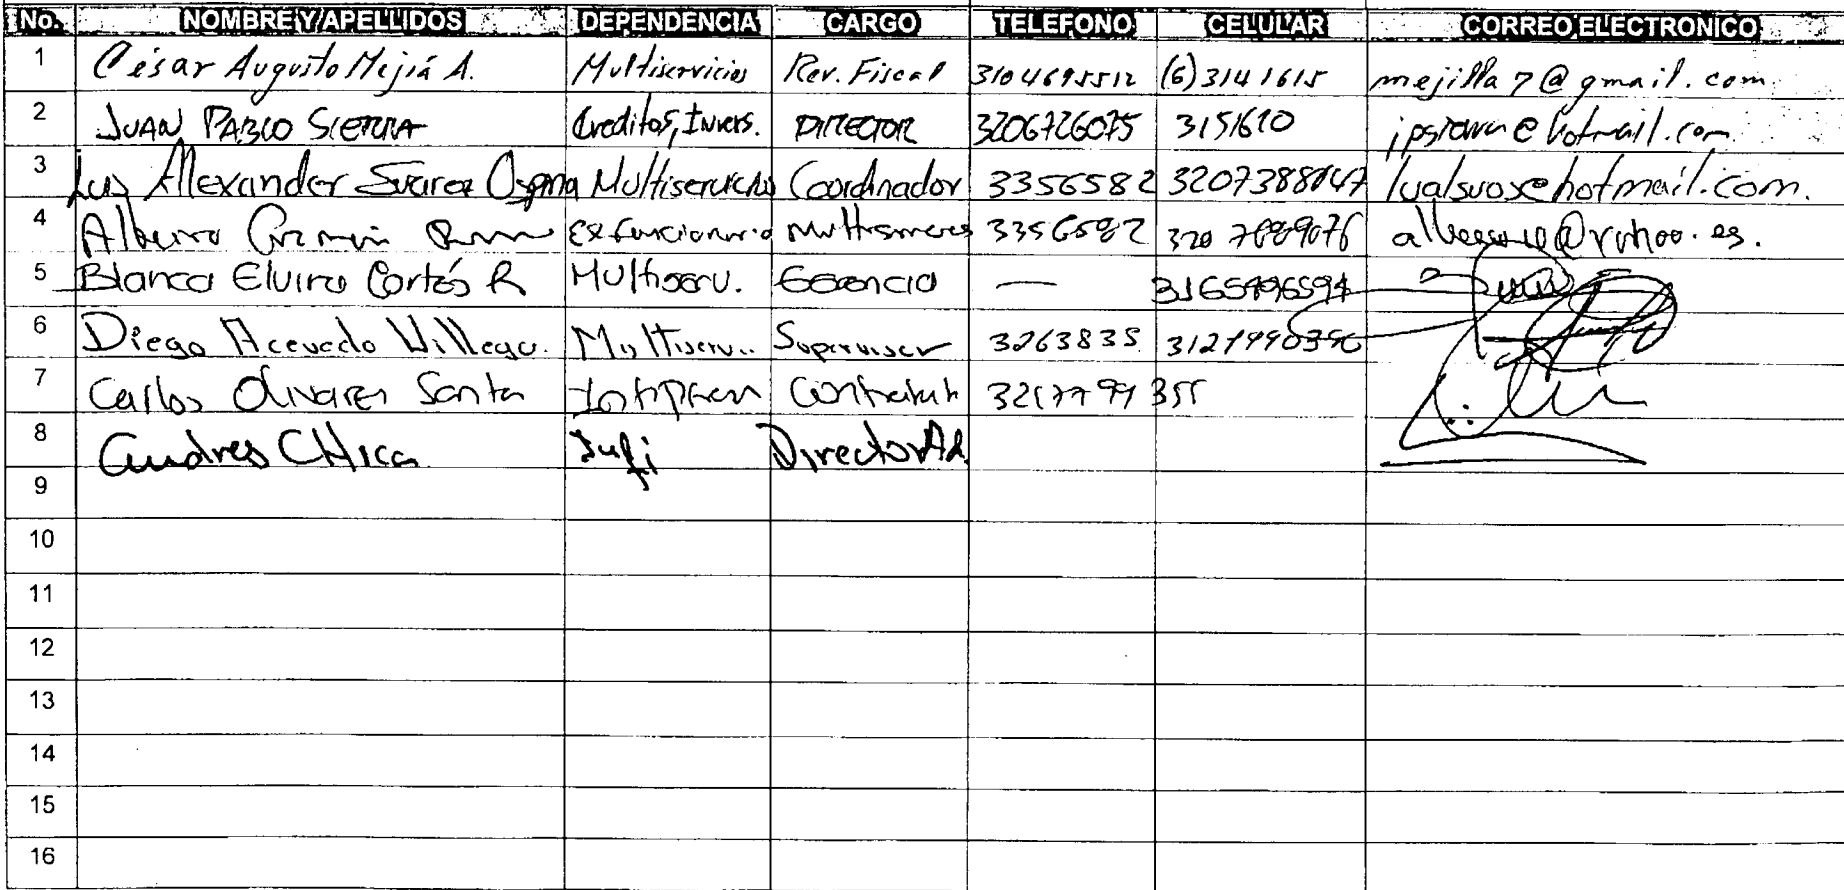 No. NOMBRE Y APELLIDOS DEPENDENCIA CARGO TELEFONO CELULAR CORREO ELECTRONICO
1 César Augusto Mejía A. Multiservicios Rev. Fiscal 3104695512 (6)3141615 mejilla7@gmail.com
2 JUAN PABLO SIERRA Creditos, Invers. DIRECTOR 3206726075 3151610 jpsierra@hotmail.com
3 Luis Allexander Suarez Ospina Multiservicios Coordinador 3356582 3207388847 lualsuos@hotmail.com.
4 Exfuncionario 3356582
5 Blanca Elvira Cortés R Multiserv. Gerencia —
6 Diego Acevedo Villegas. Multiserv.. Supervisor 3263835
7 Carlos Olivares Santa
8 Andres CHica Director Ad.
9
10
11
12
13
14
15
16